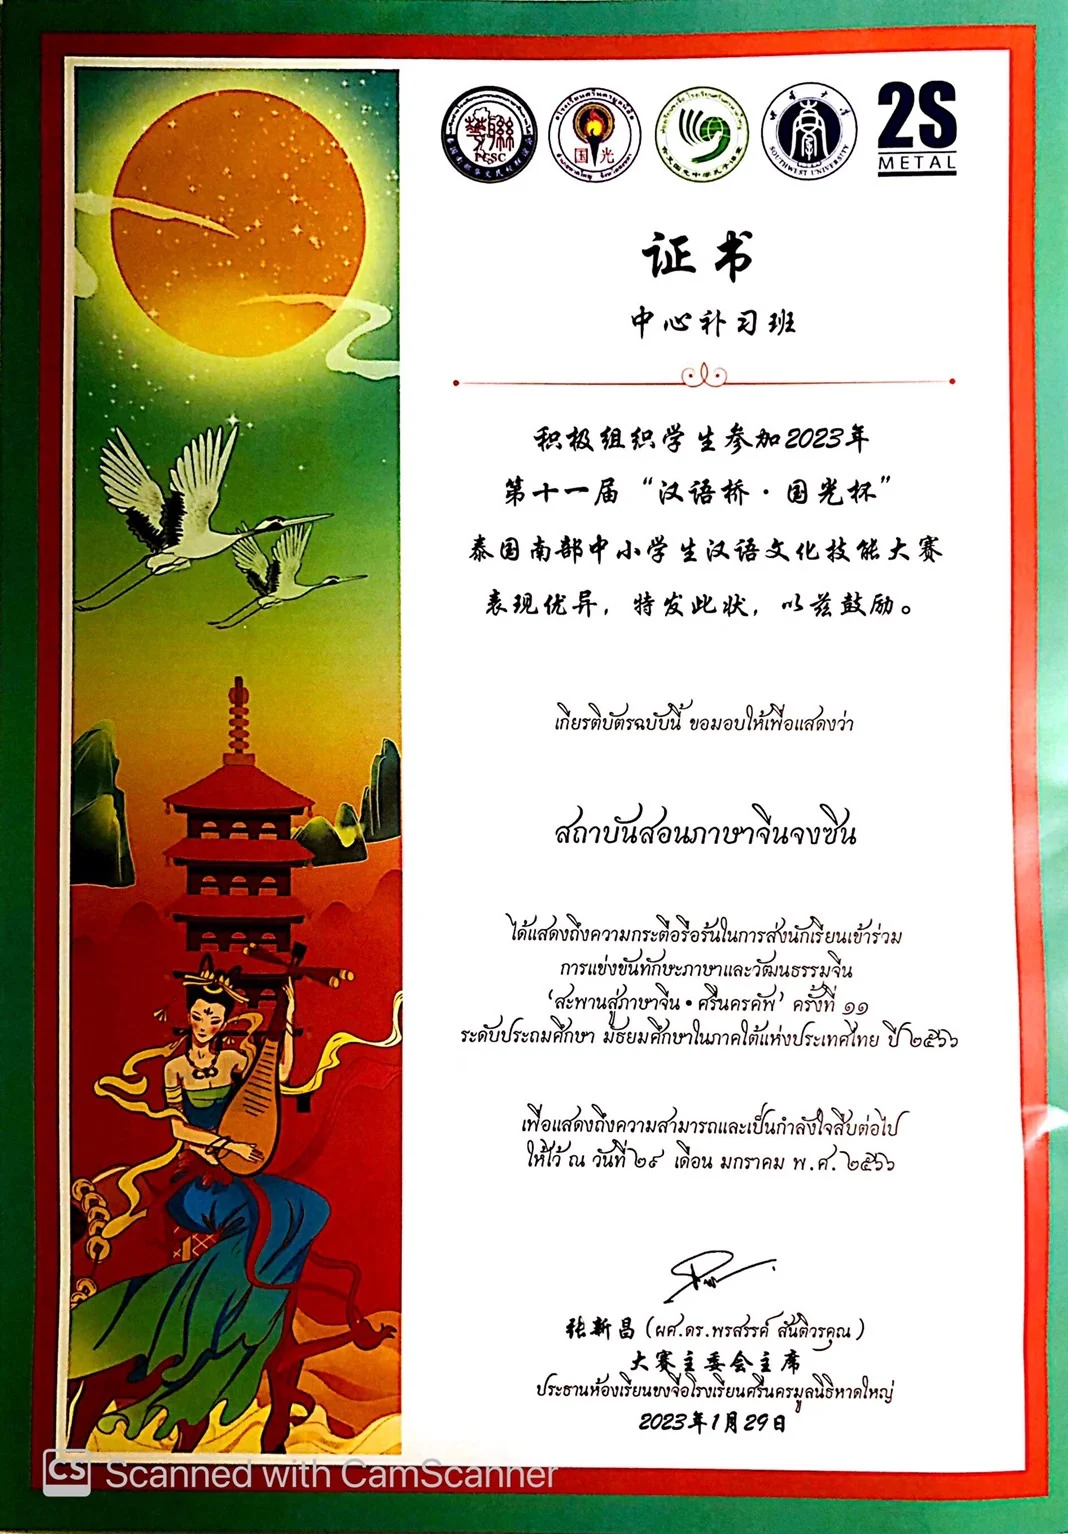 華聯
PCSC
国光
SOUTHWEST UNIVERSITY
2S
METAL
证书
中心补习班
积极组织学生参加2023年
第十一届“汉语桥·国光杯”
泰国南部中小学生汉语文化技能大赛
表现优异，特发此状，以兹鼓励。
เกียรติบัตรฉบับนี้ ขอมอบให้เพื่อแสดงว่า
สถาบันสอนภาษาจีนจงซิน
ได้แสดงถึงความกระตือรือร้นในการส่งนักเรียนเข้าร่วม
การแข่งขันทักษะภาษาและวัฒนธรรมจีน
‘สะพานสู่ภาษาจีน • ศรีนครคัพ’ ครั้งที่ ๑๑
ระดับประถมศึกษา มัธยมศึกษาในภาคใต้แห่งประเทศไทย ปี ๒๕๖๖
เพื่อแสดงถึงความสามารถและเป็นกำลังใจสืบต่อไป
ให้ไว้ ณ วันที่ ๒๙ เดือน มกราคม พ.ศ. ๒๕๖๖
张新昌 (ผศ.ดร.พรสรรค์ สันติวรคุณ)
大赛主委会主席
ประธานห้องเรียนขงจื่อโรงเรียนศรีนครมูลนิธิหาดใหญ่
2023年1月29日
CS Scanned with CamScanner